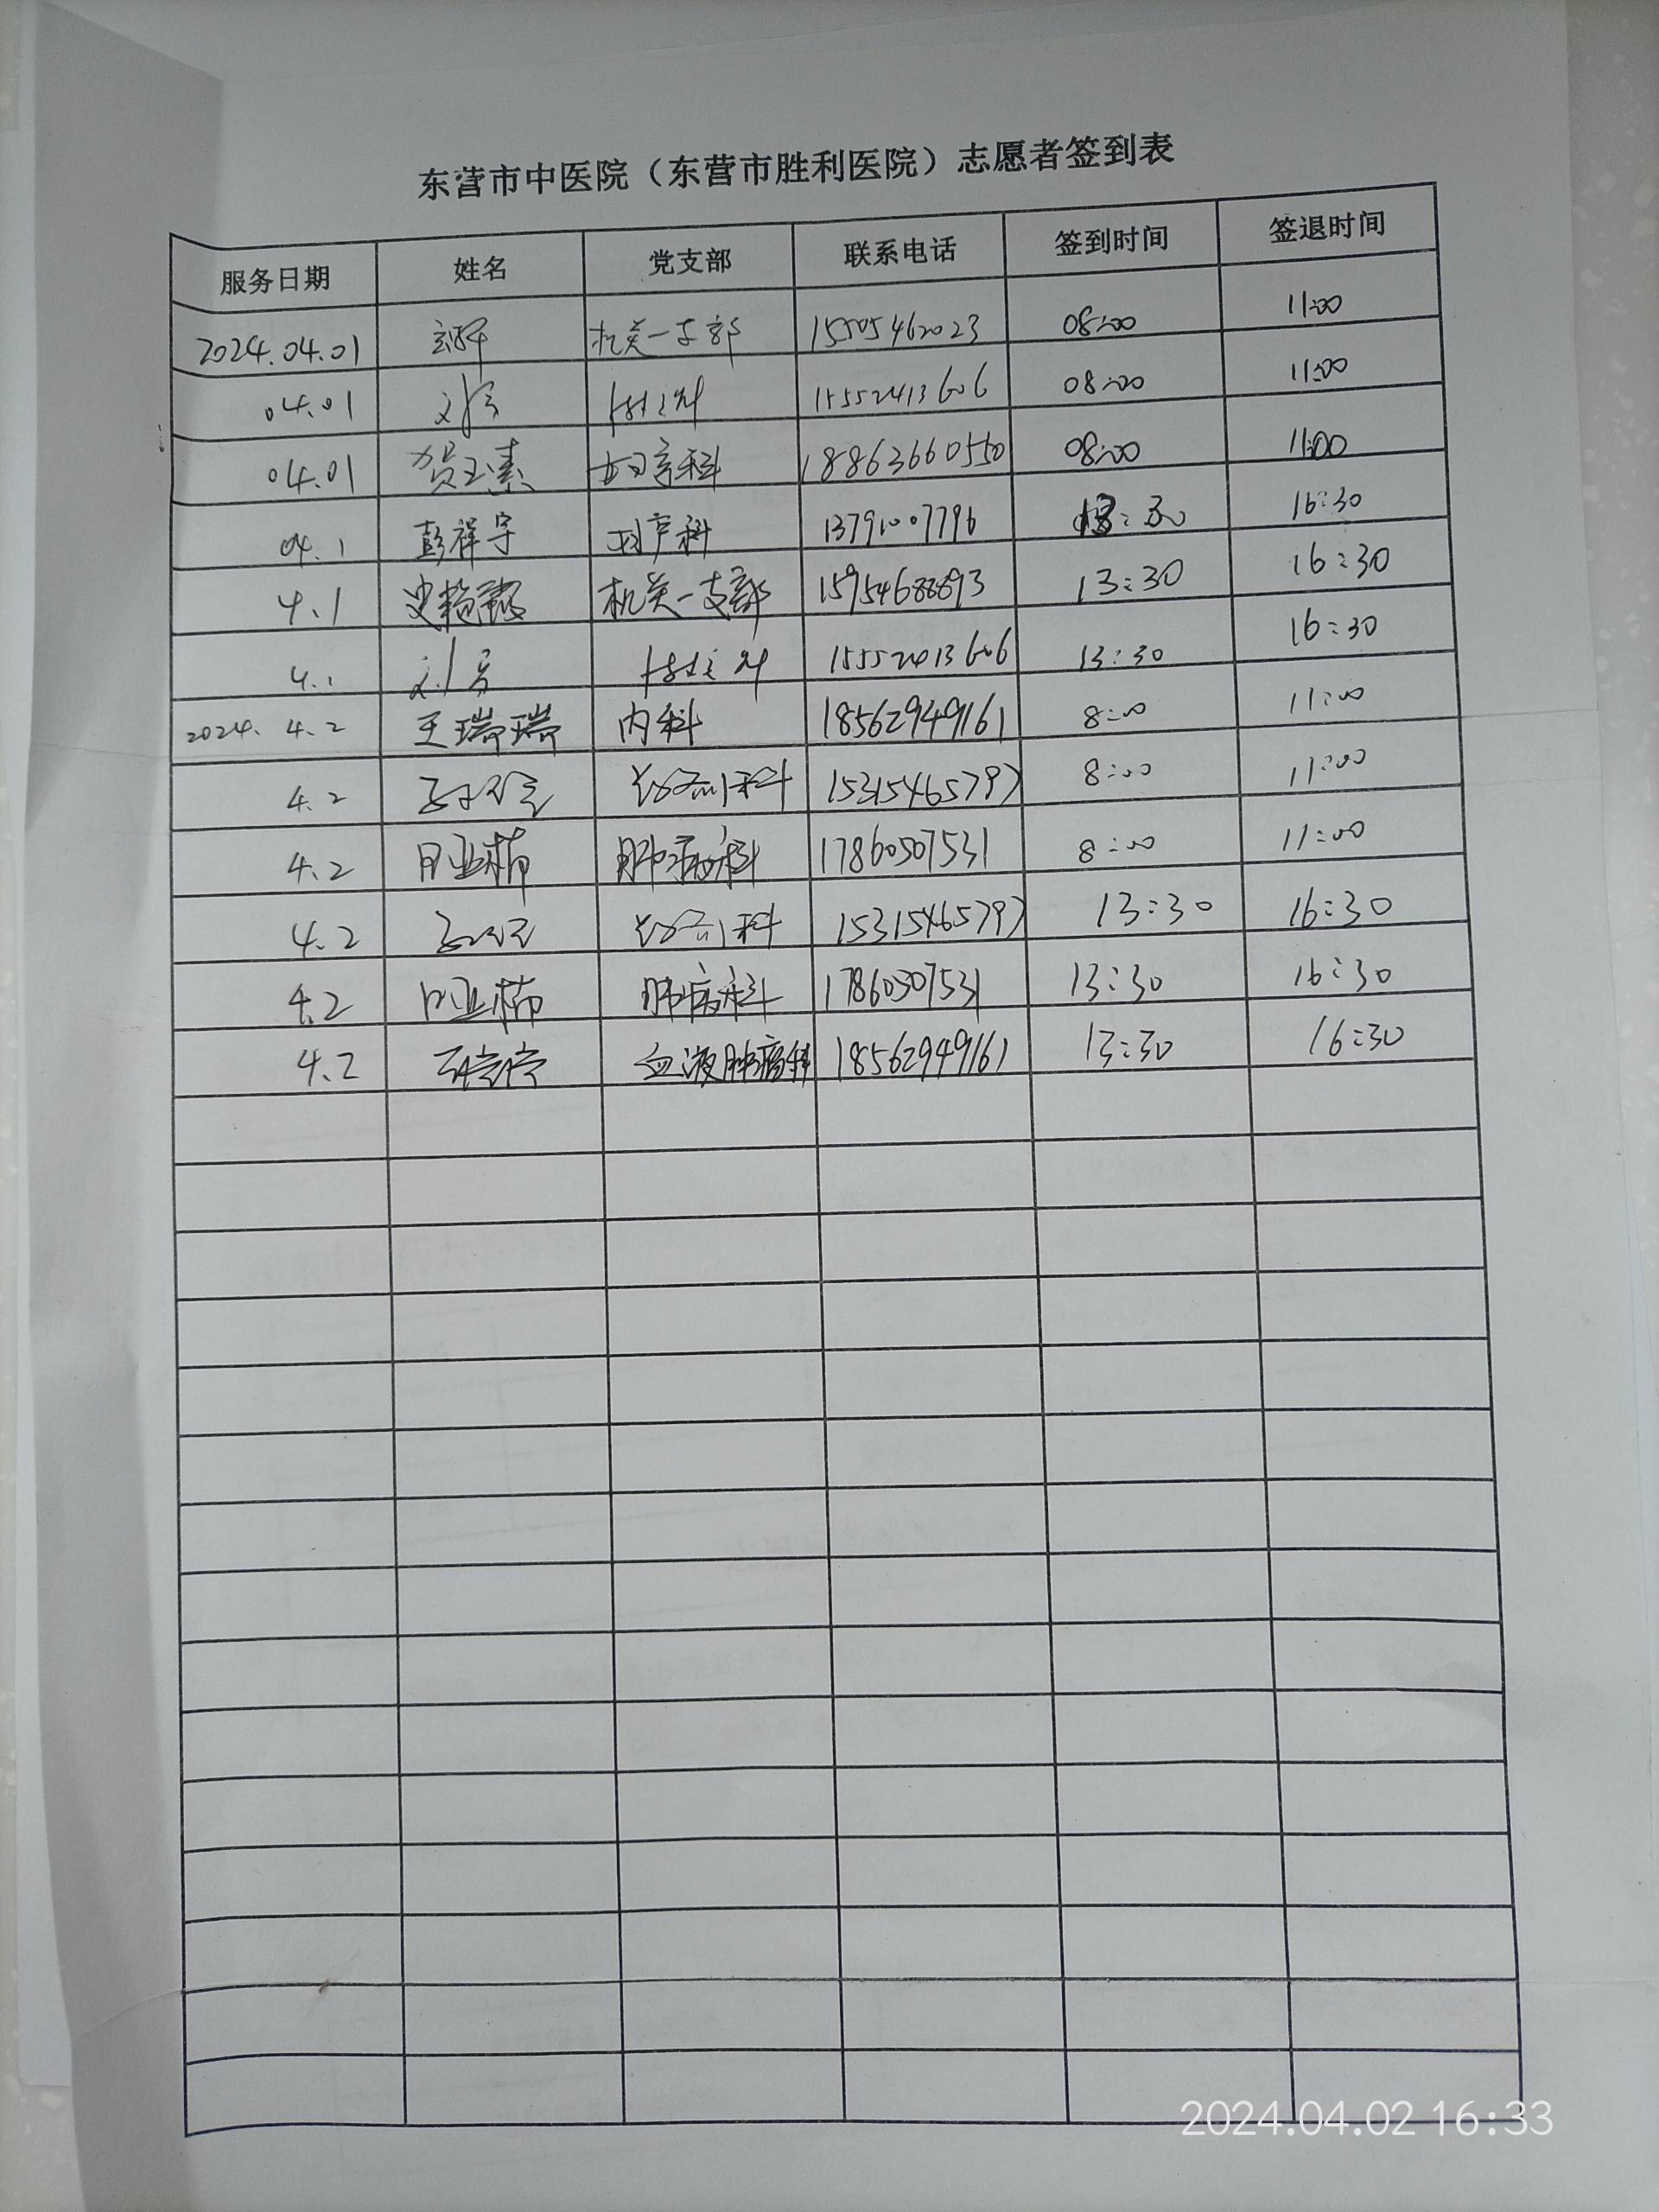 东营市中医院（东营市胜利医院）志愿者签到表
服务日期 姓名 党支部 联系电话 签到时间 签退时间
2024.04.01 机关一支部 15505462023 08:00 11:00
04.01 15552413606 08:00 11:00
04.01 贺玉素 妇产科 18863660550 08:00 11:00
04.1 彭祥宇 妇产科 13791007796 13:30 16:30
4.1 机关一支部 15954688893 13:30 16:30
4.1 15552413606 13:30 16:30
2024.4.2 王瑞瑞 内科 18562949161 8:00 11:00
4.2 15315465797 8:00 11:00
4.2 肿瘤科 17860507531 8:00 11:00
4.2 15315465797 13:30 16:30
4.2 肿瘤科 17860507531 13:30 16:30
4.2 血液肿瘤科 18562949161 13:30 16:30
2024.04.02 16:33